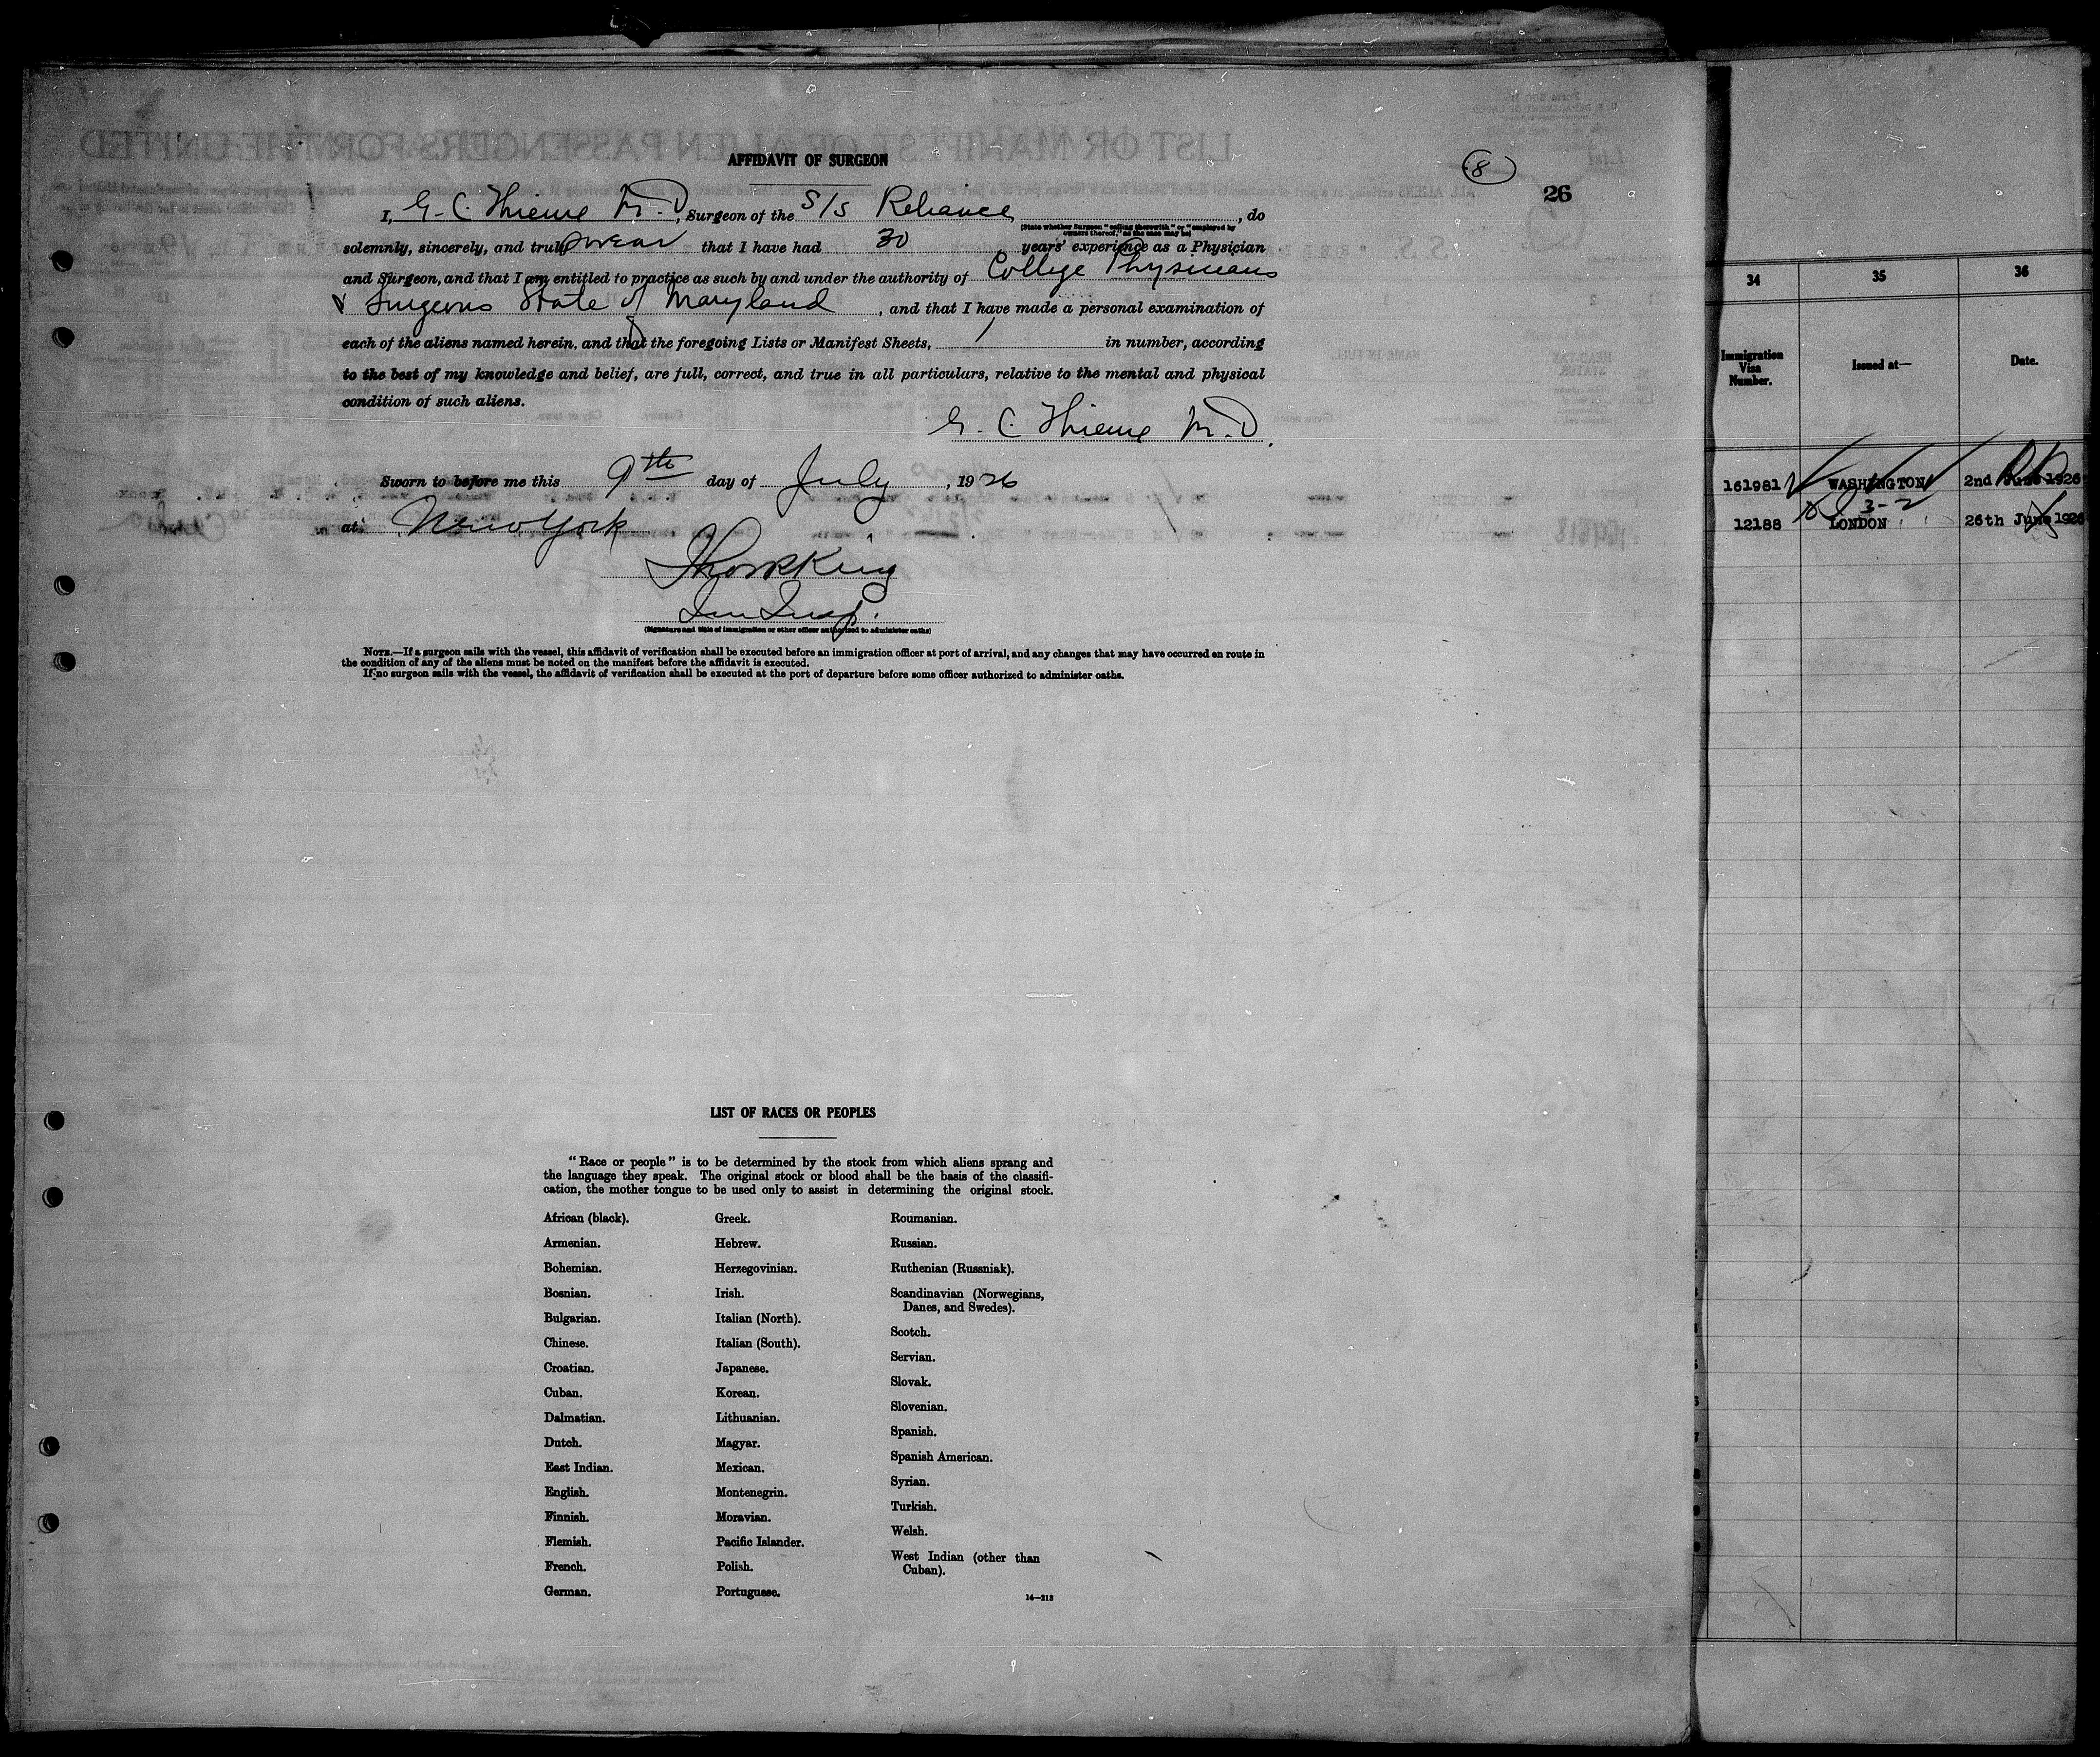 AFFIDAVIT OF SURGEON
8
26
I, G. C. Thieme M.D., Surgeon of the S/S Reliance, do
(State whether Surgeon "sailing therewith" or "employed by
owners thereof," as the case may be)
solemnly, sincerely, and truly swear that I have had 30 years' experience as a Physician
and Surgeon, and that I am entitled to practice as such by and under the authority of College Physicians
& Surgeons State of Maryland, and that I have made a personal examination of
each of the aliens named herein, and that the foregoing Lists or Manifest Sheets, 1 in number, according
to the best of my knowledge and belief, are full, correct, and true in all particulars, relative to the mental and physical
condition of such aliens.
G. C. Thieme M.D.
Sworn to before me this 9th day of July, 1926
at New York
Imm Insp.
(Signature and title of immigration or other officer authorized to administer oaths)
NOTE.—If a surgeon sails with the vessel, this affidavit of verification shall be executed before an immigration officer at port of arrival, and any changes that may have occurred en route in
the condition of any of the aliens must be noted on the manifest before the affidavit is executed.
If no surgeon sails with the vessel, the affidavit of verification shall be executed at the port of departure before some officer authorized to administer oaths.
LIST OF RACES OR PEOPLES
"Race or people" is to be determined by the stock from which aliens sprang and
the language they speak. The original stock or blood shall be the basis of the classifi-
cation, the mother tongue to be used only to assist in determining the original stock.
African (black).
Armenian.
Bohemian.
Bosnian.
Bulgarian.
Chinese.
Croatian.
Cuban.
Dalmatian.
Dutch.
East Indian.
English.
Finnish.
Flemish.
French.
German.
Greek.
Hebrew.
Herzegovinian.
Irish.
Italian (North).
Italian (South).
Japanese.
Korean.
Lithuanian.
Magyar.
Mexican.
Montenegrin.
Moravian.
Pacific Islander.
Polish.
Portuguese.
Roumanian.
Russian.
Ruthenian (Russniak).
Scandinavian (Norwegians,
Danes, and Swedes).
Scotch.
Servian.
Slovak.
Slovenian.
Spanish.
Spanish American.
Syrian.
Turkish.
Welsh.
West Indian (other than
Cuban).
14—213
34 35 36
Immigration
Visa
Number.
Issued at—
Date.
161981 WASHINGTON 2nd June 1926
3-2
12188 LONDON 26th June 1926